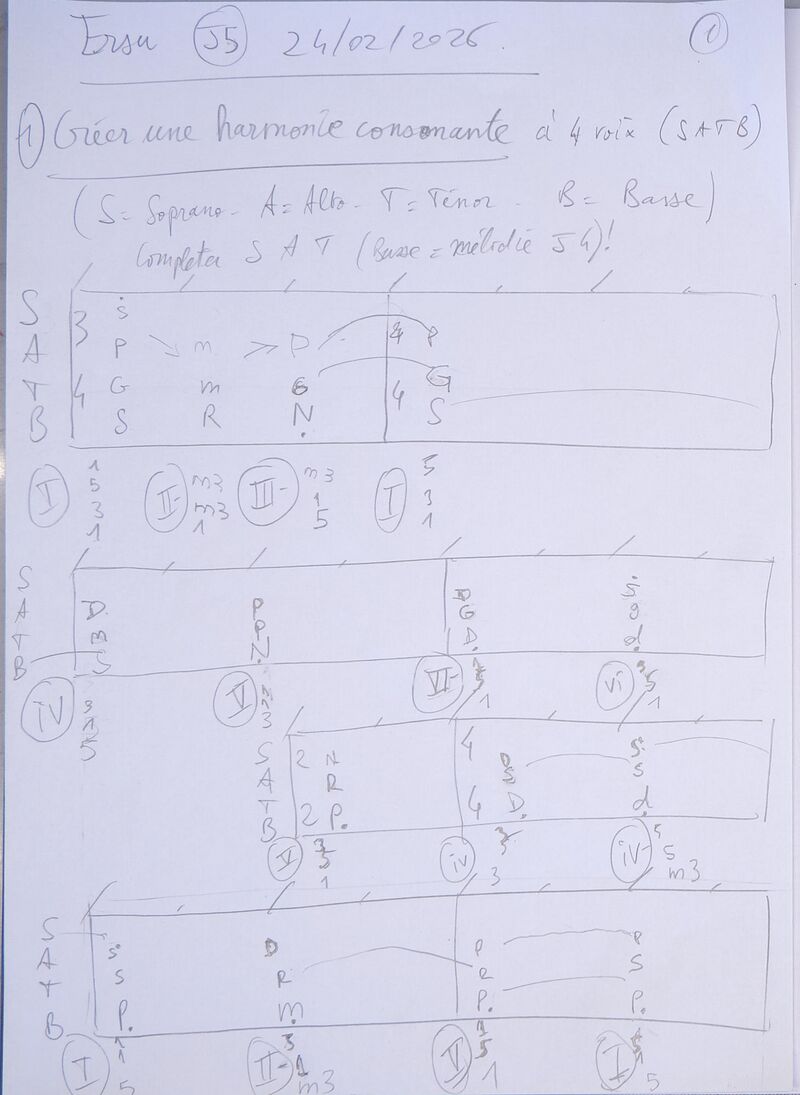 Ersu J5 24/02/2026. 1
1) Créer une harmonie consonante à 4 voix (SATB)
(S = Soprano - A = Alto - T = Ténor - B = Basse)
Completer S A T (Basse = mélodie J4)!
S Ṡ
A 3 P m P 4 P
T 4 G m G 4 G
B S R Ṇ S
I 1 5 3 1
II- m3 m3 1
III- m3 1 5
I 5 3 1
S A T B
D P D Ṡ
B P G g
S Ṇ Ḍ ḍ
iv 3 1 5
V 1 1 3
VI- 5 1
vi 5 1
S A T B
2 N 4 D Ṡ
R S S
2 Ṗ 4 Ḍ ḍ
V 3 5 1
iv 3
iv- 5 5 m3
S A T B
Ṡ D P P
S R R S
P. m. P. P.
I 1 1 5
II- 3 1 m3
V 1 5 1
I 5 1 5